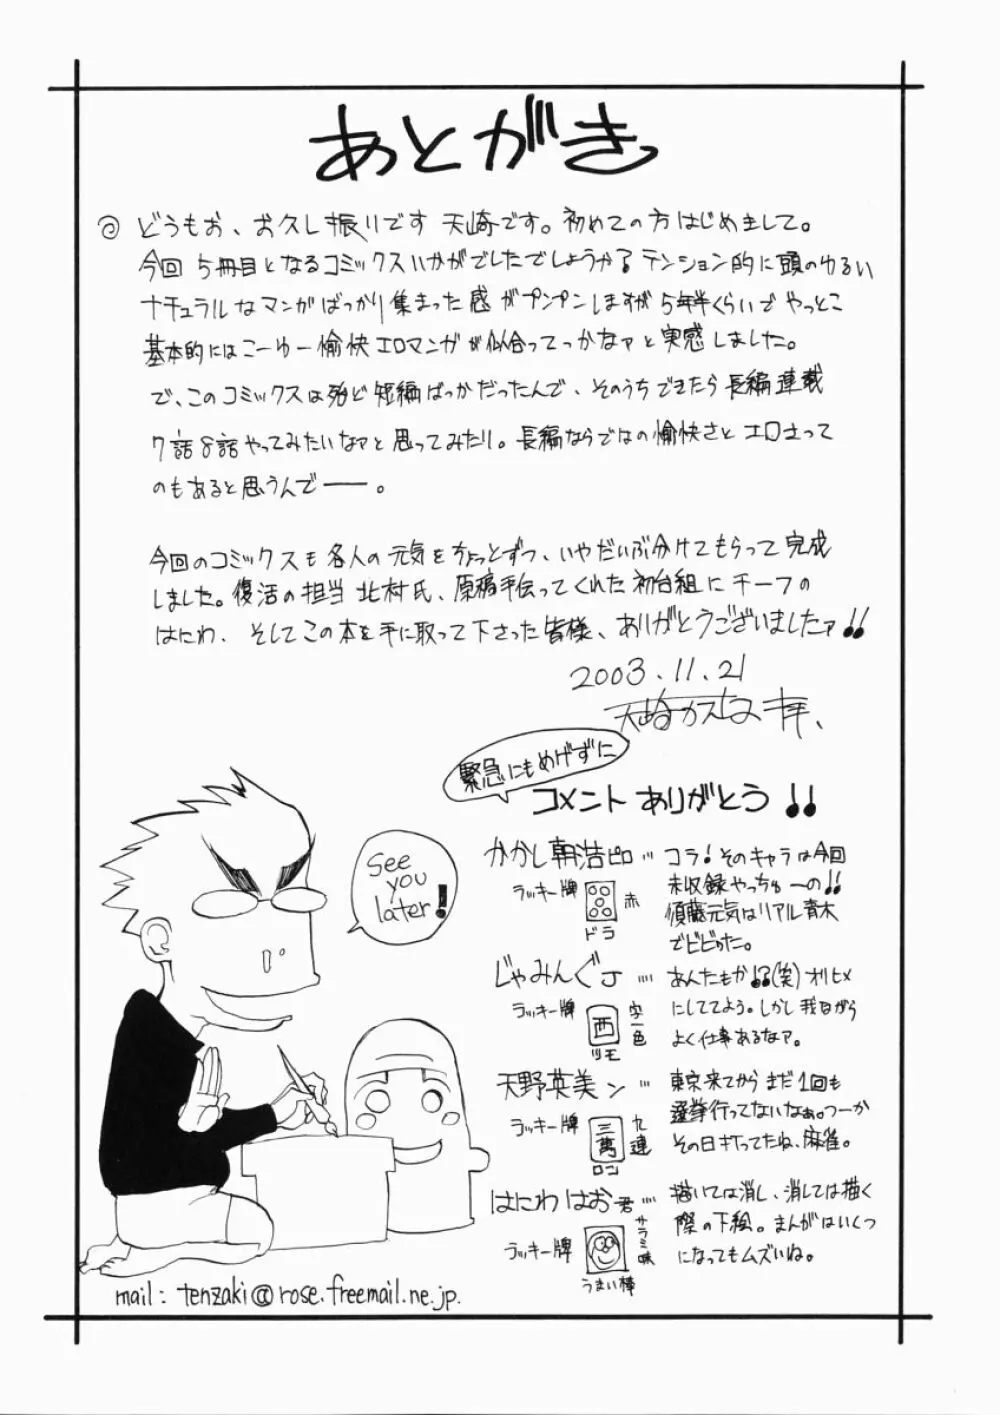 あとがき
どうもお、お久し振りです 天崎です。初めての方はじめまして。
今回 5冊目となるコミックスいかがでしたでしょうか？テンション的に頭のゆるい
ナチュラルなマンガばっかり集まった感がプンプンしますが 5年半くらいでやっとこ
基本的にはこーゆー愉快エロマンガが似合ってっかなァと実感しました。
で、このコミックスは殆ど短編ばっかだったんで、そのうちできたら長編連載
7話8話やってみたいなァと思ってみたり。長編ならではの愉快さとエロさって
のもあると思うんで――。
今回のコミックスも各人の元気をちょっとずつ、いやだいぶ分けてもらって完成
しました。復活の担当 北村氏、原稿手伝ってくれた初台組にチーフの
はにわ、そしてこの本を手に取って下さった皆様、ありがとうございましたァ!!
2003.11.21
天崎カスなオ 拝、
緊急にもめげずに
コメント ありがとう!!
かかし朝浩ピロ … コラ！そのキャラは今回
未収録やっちゅーの!!
須藤元気はリアル青木
でビビった。
ラッキー牌
赤
ドラ
じゃみんぐJ …. あんたもか!?(笑)オリヒメ
にしててよう。しかし我ながら
よく仕事あるなァ。
ラッキー牌
西
字一色
ツモ
天野英美ン … 東京来てからまだ1回も
選挙行ってないなぁ。つーか
その日打ってたね、麻雀。
ラッキー牌
三萬
九連
ロン
はにわはお君 …. 描いては消し、消しては描く
際の下絵。まんがはいくつ
になってもムズいね。
ラッキー牌
サラミ味
うまい棒
See
you
later!
mail: tenzaki@rose.freemail.ne.jp.